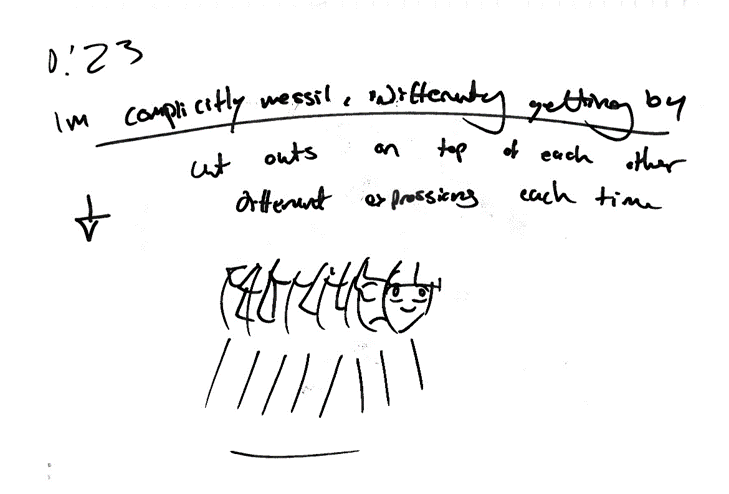 0:23
Im complicitly messil, indifferently getting by
cut outs on top of each other
different expressions each time